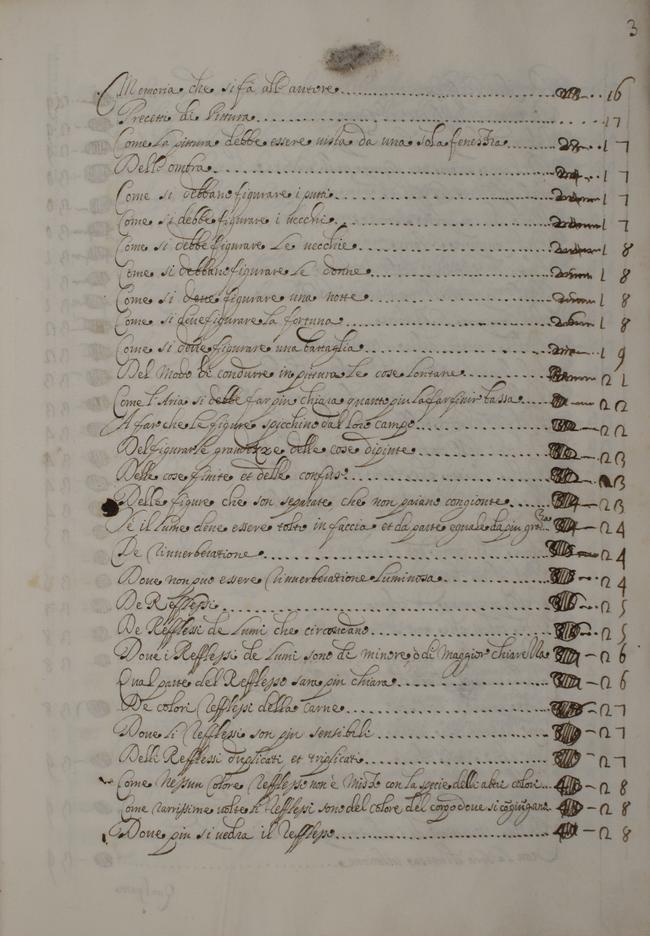 3
Memoria che si fà all'autore 16
Precetti di Pittura 17
Come la pittura debbe essere vista da una sola fenestra 17
Dell'ombra 17
Come si debbano figurare i putti 17
Come si debbe figurare i vecchi 17
Come si debbe figurare le vecchie 18
Come si debbano figurare le donne 18
Come si deve figurare una notte 18
Come si deve figurare la fortuna 18
Come si debbe figurare una battaglia 19
Del Modo di condurre in pittura le cose lontane 21
Come l'Aria si debbe far piu chiara quanto piu la fai finir bassa 22
A far che le figure spicchino dal loro campo 22
Del figurar le grandezze delle cose dipinte 23
Delle cose finite et delle confuse 23
Delle figure che son separate che non paiano congionte 23
Se il lume deve essere tolto in faccia et da parte equale da piu gra 24
De riverberatione 24
Dove non può essere riverberatione luminosa 24
De Refflessi 25
De Refflessi de Lumi che circondano 25
Dove i Refflessi de Lumi sono di minore, ò di Maggior chiarezza 26
Qual parte del Refflesso sara piu chiara 26
De colori refflessi della carne 27
Dove li refflessi son piu sensibili 27
Delli Refflessi duplicati et triplicati 27
Come Nessun Colore refflesso non è Misto con la specie delli altri colori 28
Come rarissime volte li refflessi sono del colore del corpo dove si cogiungano 28
Dove piu si vedra il refflesso 28